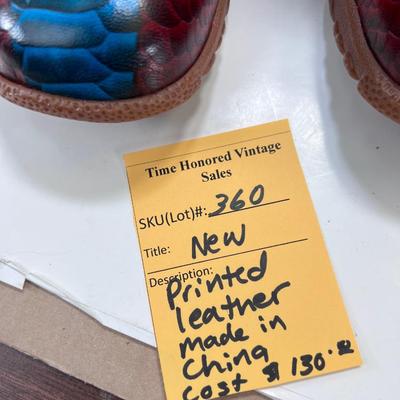 Time Honored Vintage
Sales
SKU(Lot)#: 360
Title: New
Description:
Printed
leather
made in
China
cost $130.00